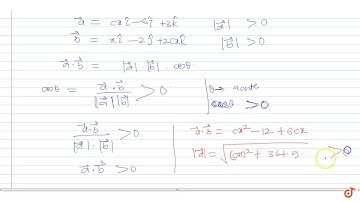 a⃗ = cxî - 6ĵ + 3k̂ |a⃗| > 0
b⃗ = xî - 2ĵ + 2cxk̂ |b⃗| > 0
a⃗·b⃗ = |a⃗|·|b⃗|·cosθ
cosθ = a⃗·b⃗ / |a⃗||b⃗| > 0
θ → acute
cosθ > 0
a⃗·b⃗ / |a⃗|·|b⃗| > 0
a⃗·b⃗ > 0
a⃗·b⃗ = cx² - 12 + 6cx
|a⃗| = √(cx)² + 36 + 9 > 0